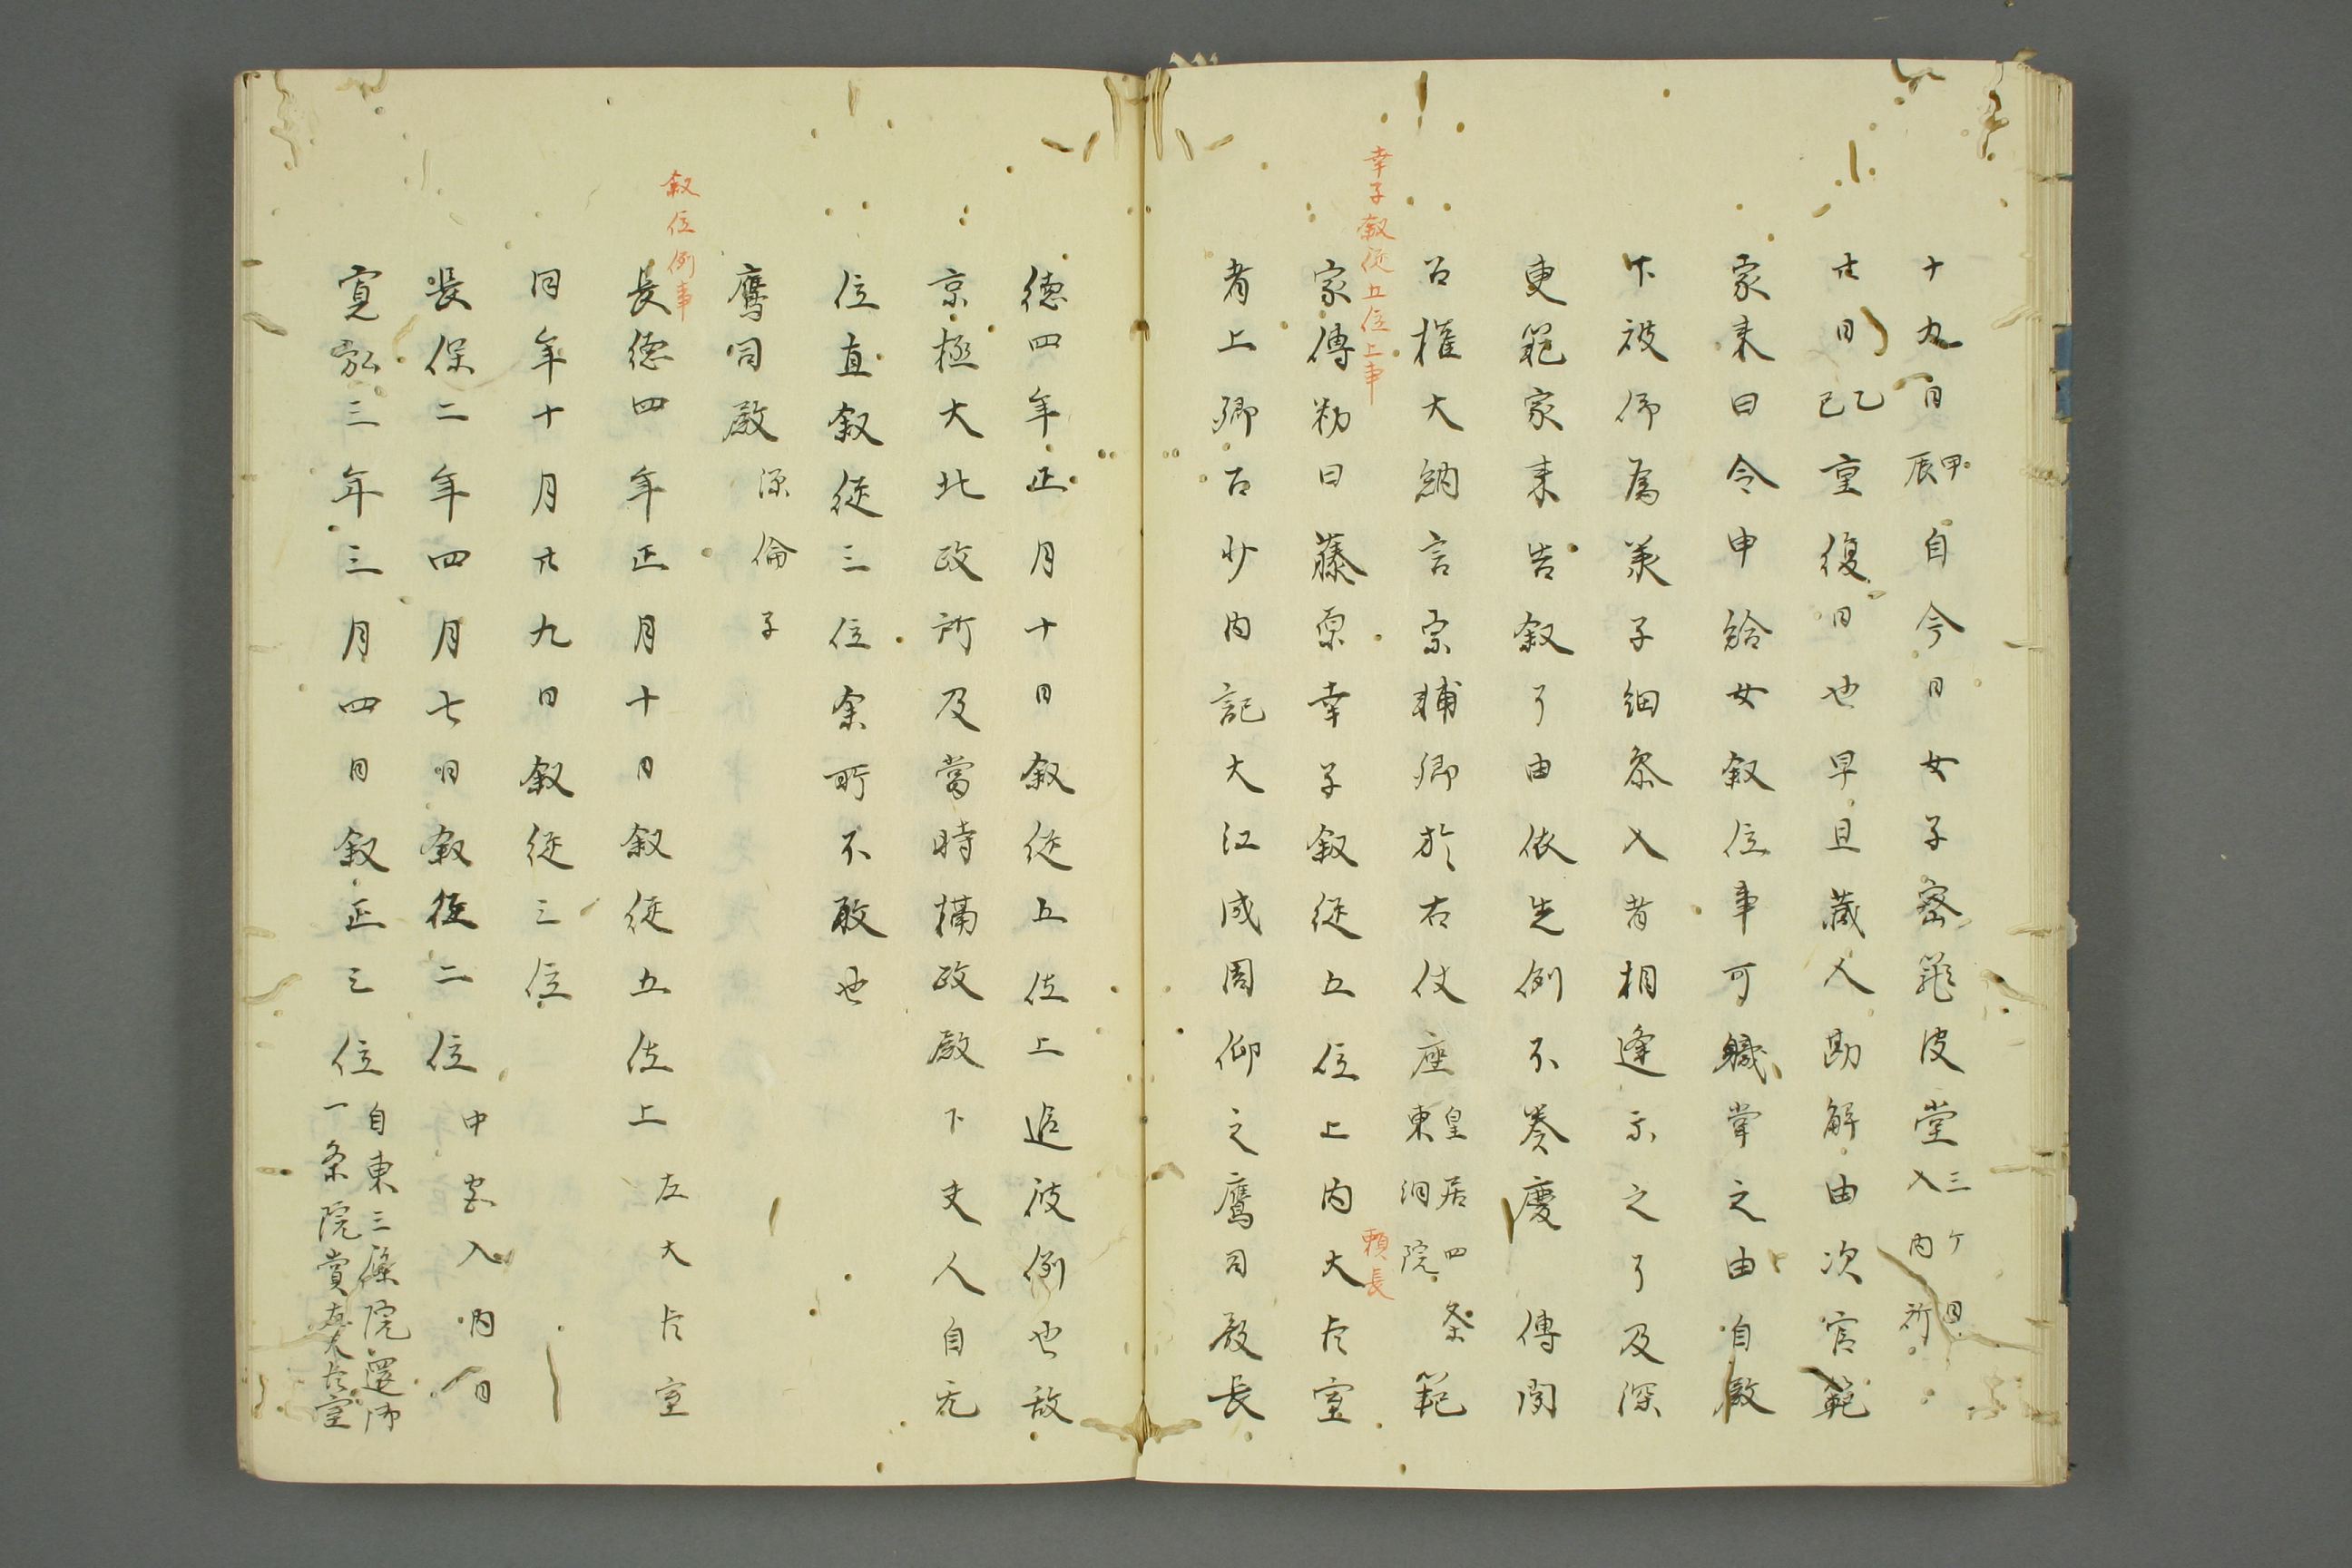 十九日甲辰自今日女子密籠波堂三ケ日入内祈
廿日乙巳重復日也早旦蔵人勘解由次官範
家来曰令申給女叙位事可職掌之由自殿
下被仰為美子細参入者相逢示之了及深
更範家来告叙了由依先例不奏慶 傳聞
召権大納言宗輔卿於右仗座皇居四条東洞院範
幸子叙従五位上事
家傳勅曰藤原幸子叙従五位上内大臣室
頼長
者上卿召少内記大江成周仰之鷹司殿長
徳四年正月十日叙従五位上追彼例也故
京極大北政所及當時摂政殿下夫人自无
位直叙従三位余所不敢也
鷹司殿源倫子
叙位例事
長徳四年正月十日叙従五位上左大臣室
同年十月廿九日叙従三位
長保二年四月七日叙従二位中宮入内日
寛弘三年三月四日叙正三位自東三條院還御一条院賞左大臣室